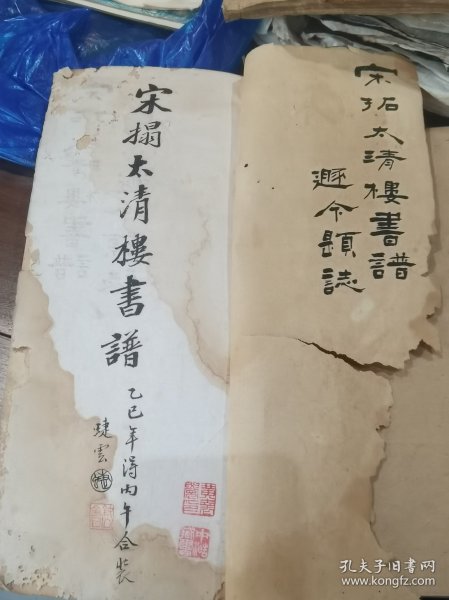 宋拓太清樓書譜
遯今題誌
宋搨太清樓書譜
乙巳年得丙午合裝
孔夫子旧书网
www.kongfz.com